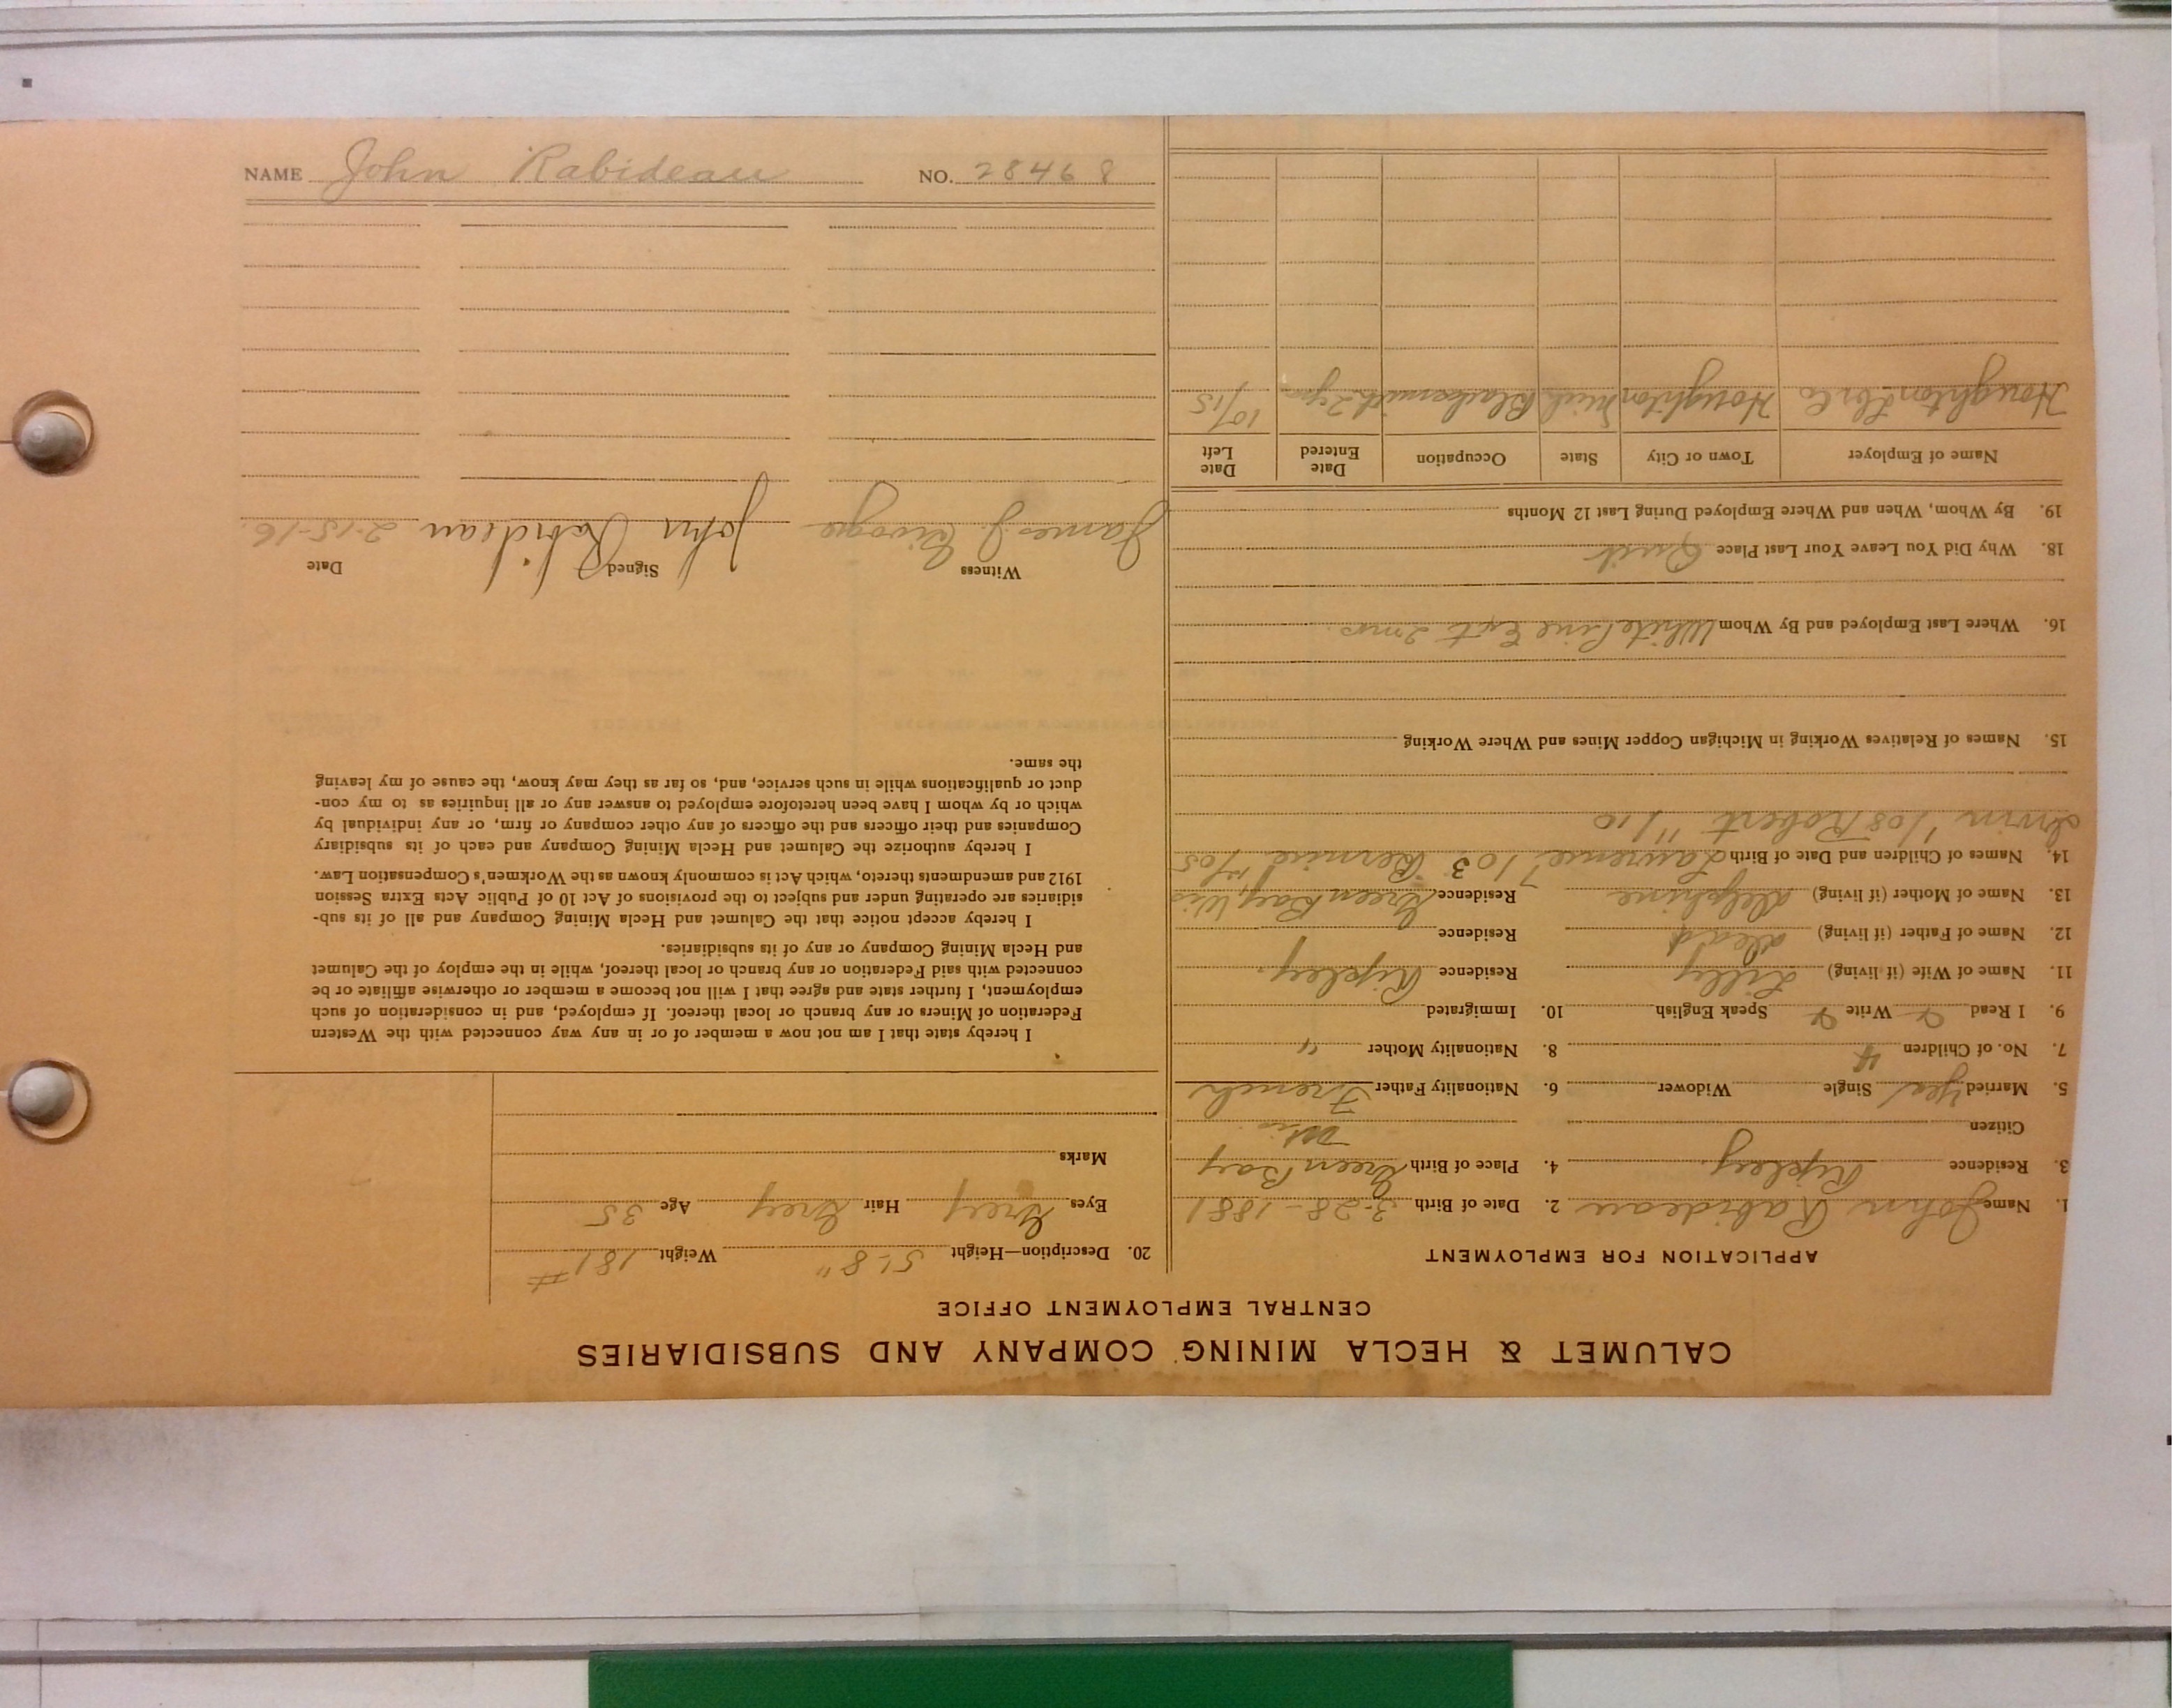 CALUMET & HECLA MINING COMPANY AND SUBSIDIARIES
CENTRAL EMPLOYMENT OFFICE
APPLICATION FOR EMPLOYMENT
1. Name John Rabideau 2. Date of Birth 3-28-1881
3. Residence Ripley. 4. Place of Birth Green Bay
Citizen Wis
5. Married Yes Single Widower 6. Nationality Father French
7. No. of Children 4 8. Nationality Mother "
9. I Read Write Speak English 10. Immigrated
11. Name of Wife (if living) Lilly Residence Ripley.
12. Name of Father (if living) dead Residence
13. Name of Mother (if living) Delphine Residence Green Bay Wis
14. Names of Children and Date of Birth Lawrence 7/03 Bernice /05
Irvin 1/08 Robert 11/10
15. Names of Relatives Working in Michigan Copper Mines and Where Working
16. Where Last Employed and By Whom White Pine Ext 2 mos.
18. Why Did You Leave Your Last Place Quit
19. By Whom, When and Where Employed During Last 12 Months
Name of Employer Town or City State Occupation Date Entered Date Left
Houghton Co Houghton Mich Blacksmith 2 yrs 10/15
20. Description—Height 5'-8" Weight 181 #
Eyes Grey Hair Grey Age 35
Marks
I hereby state that I am not now a member of or in any way connected with the Western
Federation of Miners or any branch or local thereof. If employed, and in consideration of such
employment, I further state and agree that I will not become a member or otherwise affiliate or be
connected with said Federation or any branch or local thereof, while in the employ of the Calumet
and Hecla Mining Company or any of its subsidiaries.
I hereby accept notice that the Calumet and Hecla Mining Company and all of its sub-
sidiaries are operating under and subject to the provisions of Act 10 of Public Acts Extra Session
1912 and amendments thereto, which Act is commonly known as the Workmen's Compensation Law.
I hereby authorize the Calumet and Hecla Mining Company and each of its subsidiary
Companies and their officers and the officers of any other company or firm, or any individual by
which or by whom I have been heretofore employed to answer any or all inquiries as to my con-
duct or qualifications while in such service, and, so far as they may know, the cause of my leaving
the same.
Witness Signed Date
James J. John Rabideau 2-15-16.
NAME John Rabideau NO. 28468